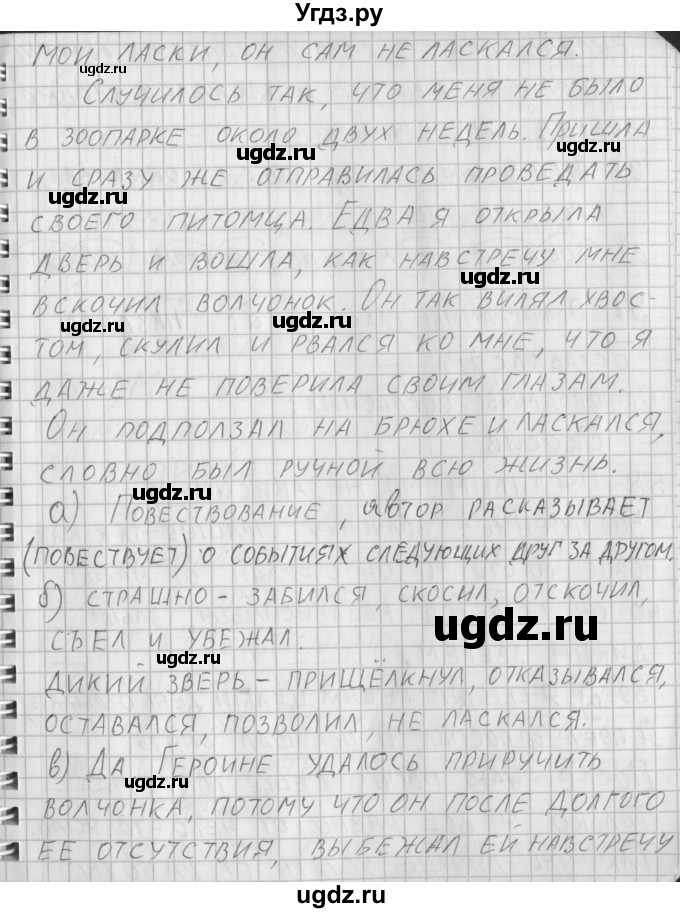 Угдз.ру
МОИ ЛАСКИ, ОН САМ НЕ ЛАСКАЛСЯ.
ugdz.ru
СЛУЧИЛОСЬ ТАК, ЧТО МЕНЯ НЕ БЫЛО
ugdz.ru
В ЗООПАРКЕ ОКОЛО ДВУХ НЕДЕЛЬ. ПРИШЛА
ugdz.ru
И СРАЗУ ЖЕ ОТПРАВИЛАСЬ ПРОВЕДАТЬ
ugdz.ru
СВОЕГО ПИТОМЦА. ЕДВА Я ОТКРЫЛА
ДВЕРЬ И ВОШЛА, КАК НАВСТРЕЧУ МНЕ
ugdz.ru
ВСКОЧИЛ ВОЛЧОНОК. ОН ТАК ВИЛЯЛ ХВОС-
ugdz.ru ugdz.ru
ТОМ, СКУЛИЛ И РВАЛСЯ КО МНЕ, ЧТО Я
ДАЖЕ НЕ ПОВЕРИЛА СВОИМ ГЛАЗАМ.
ОН ПОДПОЛЗАЛ НА БРЮХЕ И ЛАСКАЛСЯ,
СЛОВНО БЫЛ РУЧНОЙ ВСЮ ЖИЗНЬ.
ugdz.ru
а) ПОВЕСТВОВАНИЕ, АВТОР РАСКАЗЫВАЕТ
(ПОВЕСТВУЕТ) О СОБЫТИЯХ СЛЕДУЮЩИХ ДРУГ ЗА ДРУГОМ.
б) СТРАШНО - ЗАБИЛСЯ, СКОСИЛ, ОТСКОЧИЛ,
ugdz.ru
СЪЕЛ И УБЕЖАЛ.
ugdz.ru
ДИКИЙ ЗВЕРЬ - ПРИЩЁЛКНУЛ, ОТКАЗЫВАЛСЯ,
ОСТАВАЛСЯ, ПОЗВОЛИЛ, НЕ ЛАСКАЛСЯ.
в) ДА ГЕРОИНЕ УДАЛОСЬ ПРИРУЧИТЬ
ugdz.ru
ВОЛЧОНКА, ПОТОМУ ЧТО ОН ПОСЛЕ ДОЛГОГО
ЕЕ ОТСУТСТВИЯ, ВЫБЕЖАЛ ЕЙ НАВСТРЕЧУ
ugdz.ru